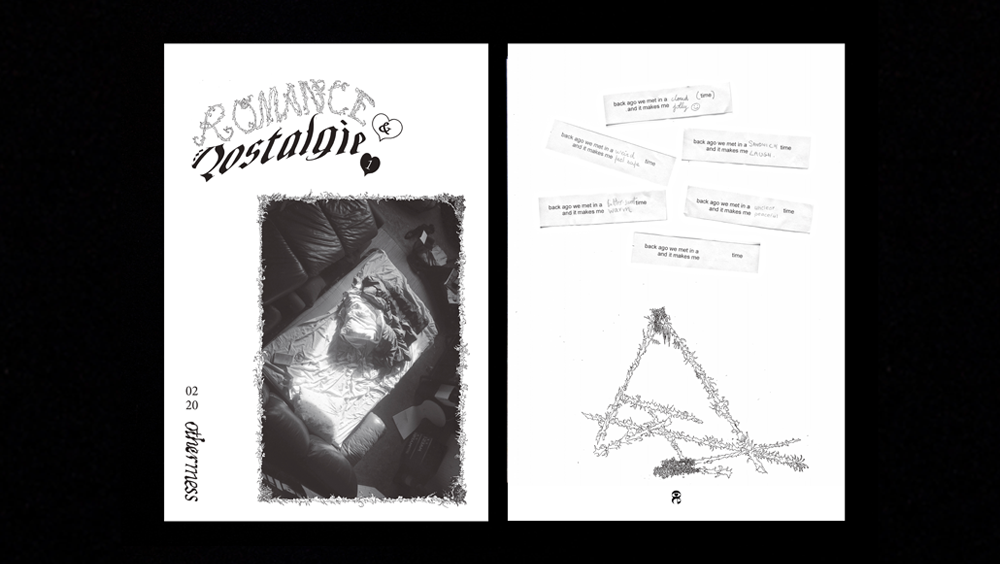 ROMANCE
&
Nostalgie
1
02
20
othermess
back ago we met in a cloud (time)
and it makes me giddy
back ago we met in a weird time
and it makes me feel safe
back ago we met in a SANDWICH time
and it makes me LAUGH
back ago we met in a time
and it makes me warm
back ago we met in a time
and it makes me peaceful
back ago we met in a time
and it makes me